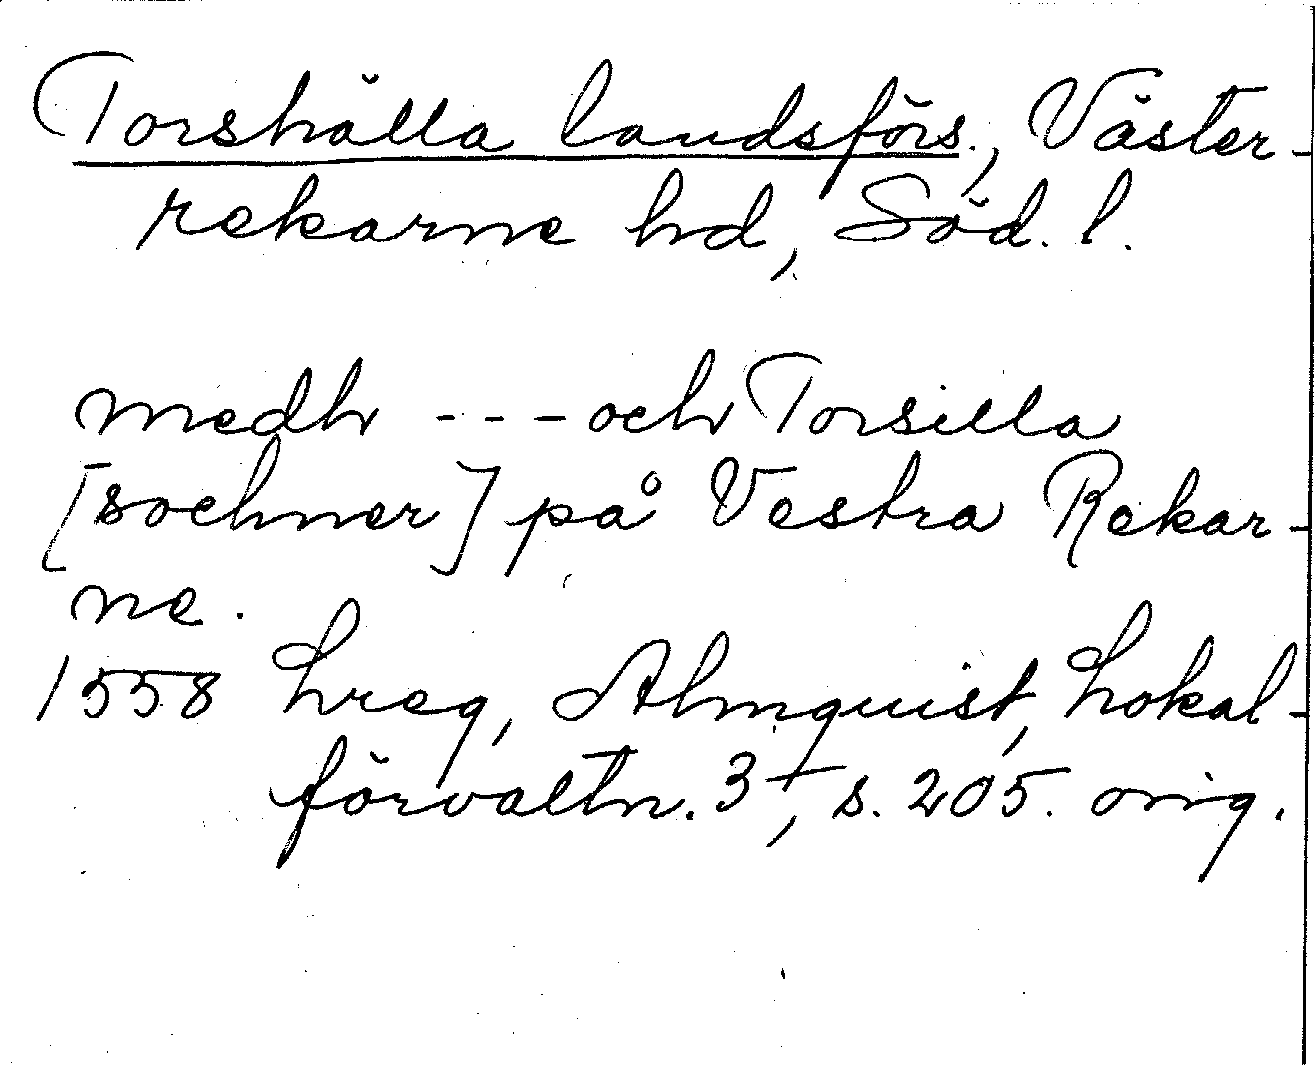 Torshälla landsförs., Väster-
rekarne hd, Söd. l.
medh --- och Torsilla
[sochner] på Vestra Rekar-
ne.
1558 Lreg, Almquist, Lokal-
förvaltn. 3+, s. 205. orig.